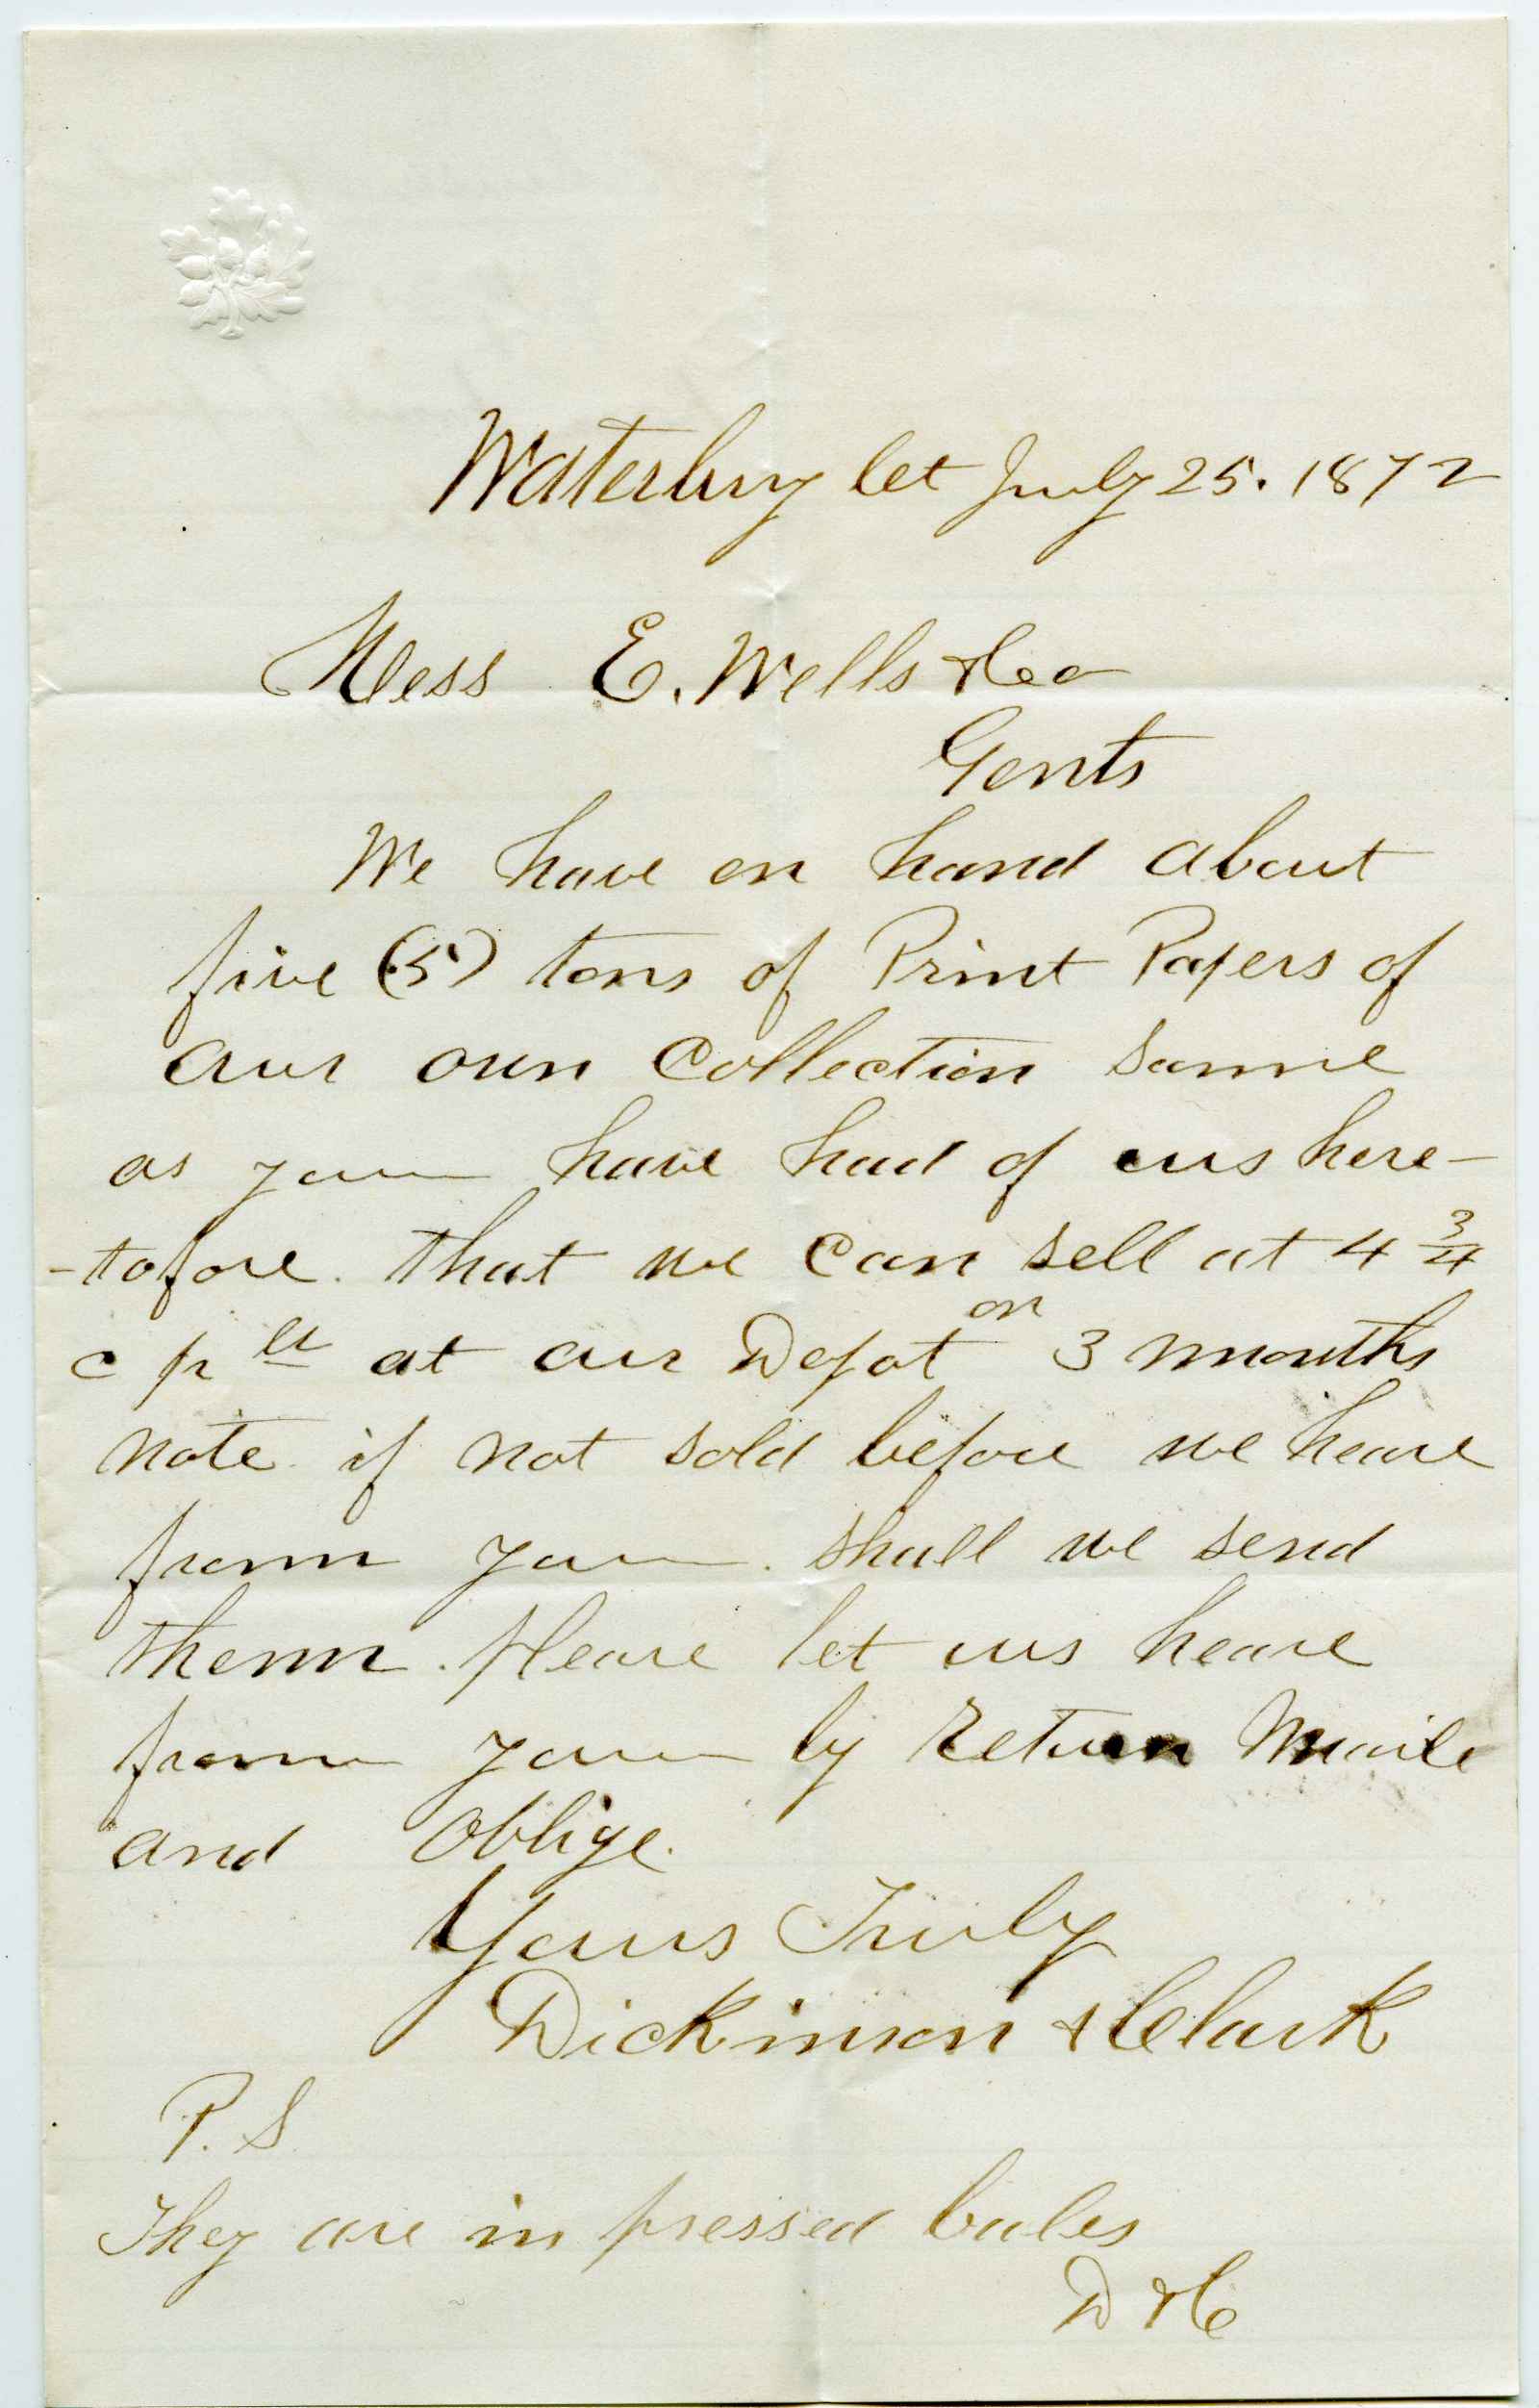 Waterbury Ct July 25. 1872
Mess E. Wells & Co
Gents
We have on hand about
five (5) tons of Print Papers of
our own Collection Same
as you have had of us here-
-tofore. that we can sell at 4 3/4
c p lb at our Depot on 3 months
note. if not sold before we heare
from you. shall we send
them. please let us heare
from you by return Maile
and oblige.
Yours Truly
Dickinson & Clark
P. S
They are in pressed bales
D & C